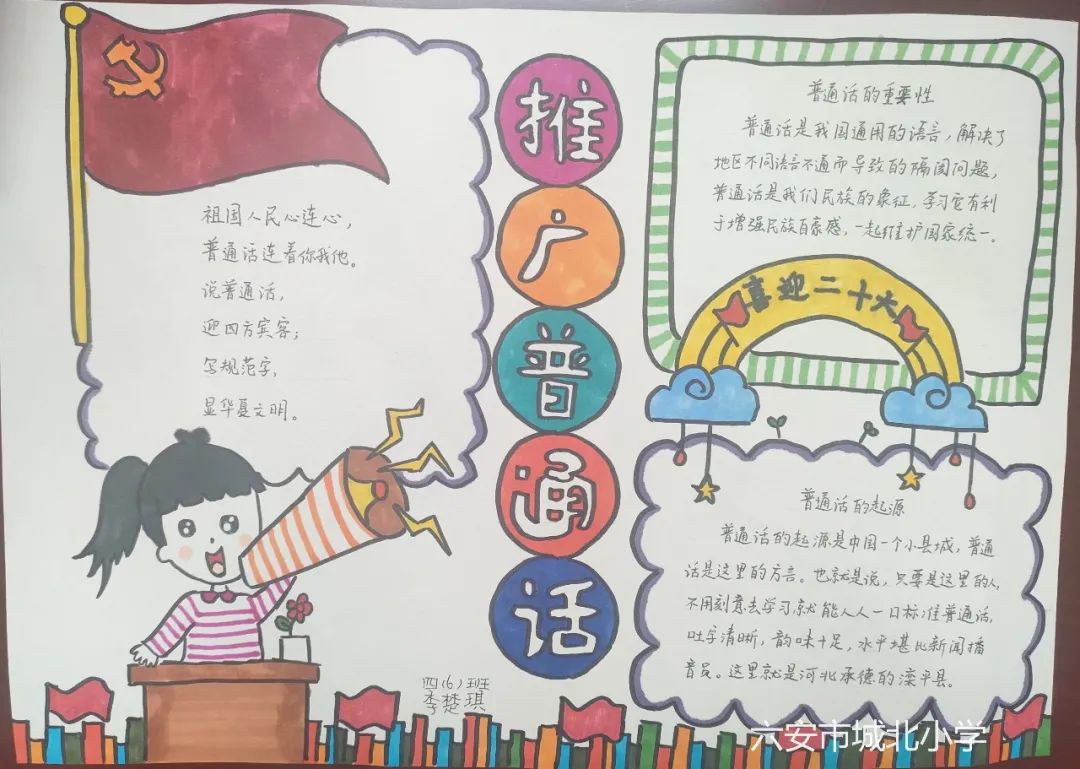 推广普通话
祖国人民心连心，
普通话连着你我他。
说普通话，
迎四方宾客；
写规范字，
显华夏文明。
四（6）班
李楚琪
普通话的重要性
普通话是我国通用的语言，解决了
地区不同语言不通而导致的隔阂问题，
普通话是我们民族的象征，学习它有利
于增强民族自豪感，一起维护国家统一。
喜迎二十大
普通话的起源
普通话的起源是中国一个小县城，普通
话是这里的方言。也就是说，只要是这里的人，
不用刻意去学习，就能人人一口标准普通话，
吐字清晰，韵味十足，水平堪比新闻播
音员。这里就是河北承德的滦平县。
六安市城北小学